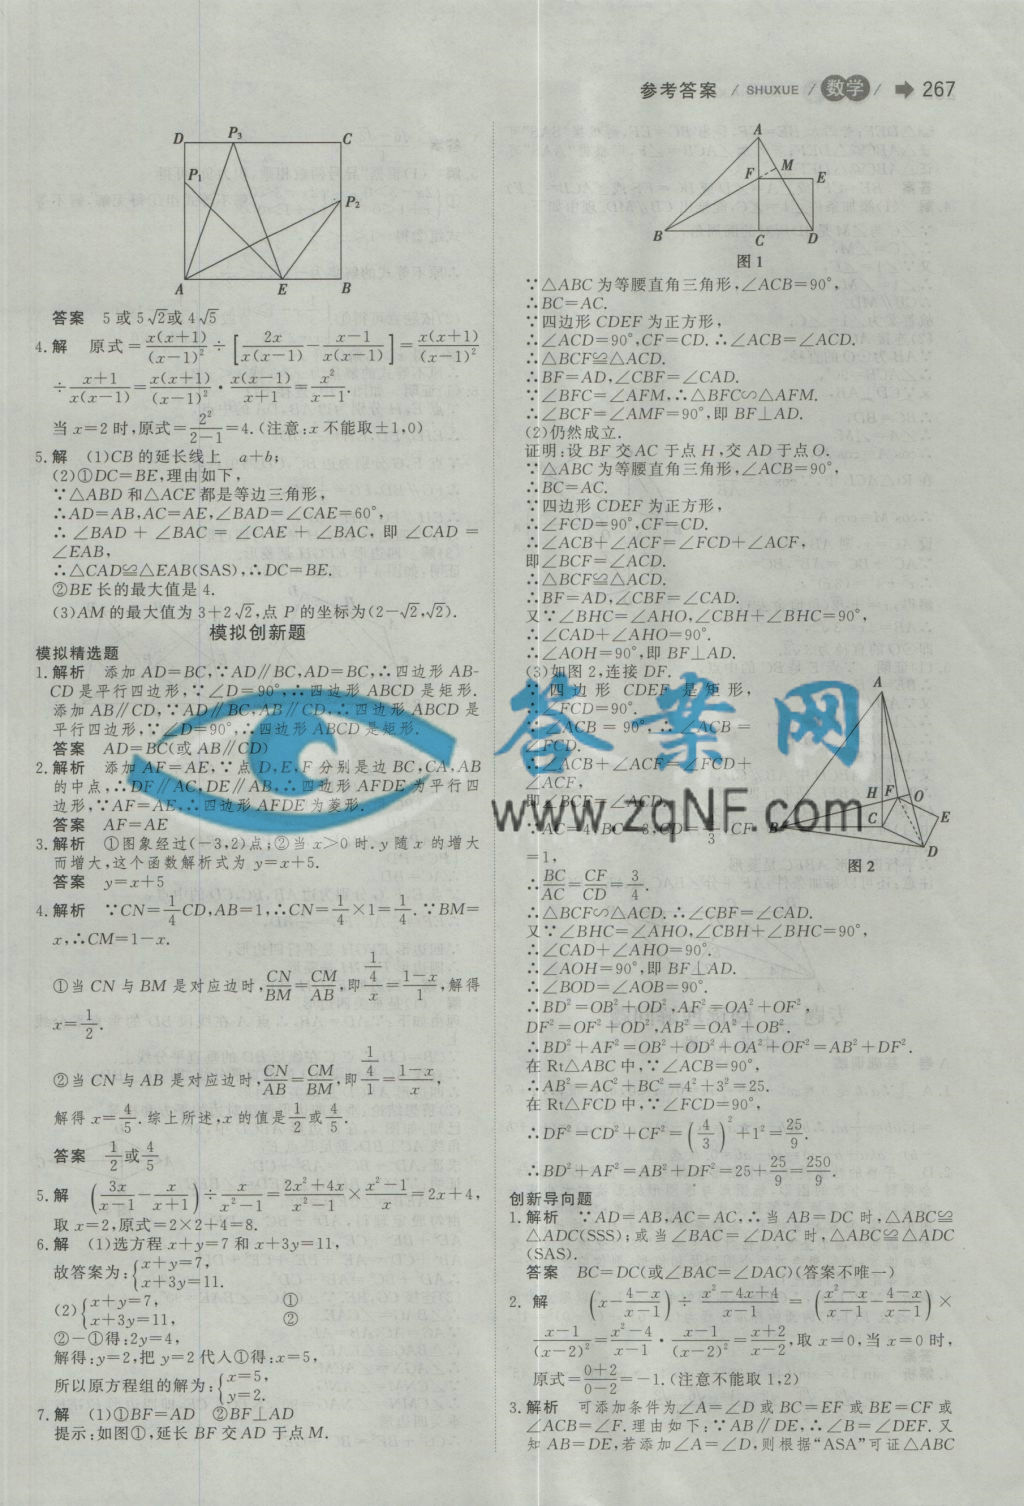 参考答案 / SHUXUE / 数学 / ➡ 267
D P₃ C
P₁
P₂
A E B
答案 5或5√2或4√5
4.解 原式=x(x+1)/(x-1)²÷[2x/x(x-1)-x-1/x(x-1)]=x(x+1)/(x-1)²
÷x+1/x(x-1)=x(x+1)/(x-1)²·x(x-1)/x+1=x²/x-1.
当x=2时,原式=2²/2-1=4.(注意:x不能取±1,0)
5.解 (1)CB的延长线上 a+b;
(2)①DC=BE,理由如下,
∵△ABD和△ACE都是等边三角形,
∴AD=AB,AC=AE,∠BAD=∠CAE=60°,
∴∠BAD+∠BAC=∠CAE+∠BAC,即∠CAD=
∠EAB,
∴△CAD≌△EAB(SAS),∴DC=BE.
②BE长的最大值是4.
(3)AM的最大值为3+2√2,点P的坐标为(2-√2,√2).
模拟创新题
模拟精选题
1.解析 添加AD=BC,∵AD∥BC,AD=BC,∴四边形AB-
CD是平行四边形,∵∠D=90°,∴四边形ABCD是矩形.
添加AB∥CD,∵AD∥BC,AB∥CD,∴四边形ABCD是
平行四边形,∵∠D=90°,∴四边形ABCD是矩形.
答案 AD=BC(或AB∥CD)
2.解析 添加AF=AE,∵点D,E,F分别是边BC,CA,AB
的中点,∴DF∥AC,DE∥AB,∴四边形AFDE为平行四
边形,∵AF=AE,∴四边形AFDE为菱形.
答案 AF=AE
3.解析 ①图象经过(-3,2)点;②当x>0时.y随x的增大
而增大,这个函数解析式为y=x+5.
答案 y=x+5
4.解析 ∵CN=1/4CD,AB=1,∴CN=1/4×1=1/4.∵BM=
x,∴CM=1-x.
①当CN与BM是对应边时,CN/BM=CM/AB,即1/4/x=1-x/1,解得
x=1/2.
②当CN与AB是对应边时,CN/AB=CM/BM,即1/4/1=1-x/x,
解得x=4/5.综上所述,x的值是1/2或4/5.
答案 1/2或4/5
5.解 (3x/x-1-x/x+1)÷x/x²-1=2x²+4x/x²-1×x²-1/x=2x+4,
取x=2,原式=2×2+4=8.
6.解 (1)选方程x+y=7和x+3y=11,
故答案为:{x+y=7,
x+3y=11.
(2){x+y=7, ①
x+3y=11, ②
②-①得:2y=4,
解得:y=2,把y=2代入①得:x=5,
所以原方程组的解为:{x=5,
y=2.
7.解 (1)①BF=AD ②BF⊥AD
提示:如图①,延长BF交AD于点M.
A
M
F E
B C D
图1
∵△ABC为等腰直角三角形,∠ACB=90°,
∴BC=AC.
∵四边形CDEF为正方形,
∴∠ACD=90°,CF=CD.∴∠ACB=∠ACD.
∴△BCF≌△ACD.
∴BF=AD,∠CBF=∠CAD.
∵∠BFC=∠AFM,∴△BFC∽△AFM.
∴∠BCF=∠AMF=90°,即BF⊥AD.
(2)仍然成立.
证明:设BF交AC于点H,交AD于点O.
∵△ABC为等腰直角三角形,∠ACB=90°,
∴BC=AC.
∵四边形CDEF为正方形,
∴∠FCD=90°,CF=CD.
∴∠ACB+∠ACF=∠FCD+∠ACF,
即∠BCF=∠ACD.
∴△BCF≌△ACD.
∴BF=AD,∠CBF=∠CAD.
又∵∠BHC=∠AHO,∠CBH+∠BHC=90°,
∴∠CAD+∠AHO=90°.
∴∠AOH=90°,即BF⊥AD.
(3)如图2,连接DF.
∵四边形CDEF是矩形,
∴∠FCD=90°.
∵∠ACB=90°,∴∠ACB=
∠FCD.
∴∠ACB+∠ACF=∠FCD+
∠ACF,
即∠BCF=∠ACD.
∵AC=4,BC=3,CD=4/3,CF
=1,
∴BC/AC=CF/CD=3/4.
A
H F O
E
B C
D
图2
∴△BCF∽△ACD.∴∠CBF=∠CAD.
又∵∠BHC=∠AHO,∠CBH+∠BHC=90°,
∴∠CAD+∠AHO=90°.
∴∠AOH=90°,即BF⊥AD.
∴∠BOD=∠AOB=90°.
∴BD²=OB²+OD²,AF²=OA²+OF²,
DF²=OF²+OD²,AB²=OA²+OB².
∴BD²+AF²=OB²+OD²+OA²+OF²=AB²+DF².
在Rt△ABC中,∵∠ACB=90°,
∴AB²=AC²+BC²=4²+3²=25.
在Rt△FCD中,∵∠FCD=90°,
∴DF²=CD²+CF²=(4/3)²+1²=25/9.
∴BD²+AF²=AB²+DF²=25+25/9=250/9.
创新导向题
1.解析 ∵AD=AB,AC=AC,∴当AB=DC时,△ABC≌
△ADC(SSS);或当∠BAC=∠DAC时,△ABC≌△ADC
(SAS).
答案 BC=DC(或∠BAC=∠DAC)(答案不唯一)
2.解 (x-4-x/x-1)÷x²-4x+4/x-1=(x²-x/x-1-4-x/x-1)×
x-1/(x-2)²=x²-4/x-1·x-1/(x-2)²=x+2/x-2,取x=0,当x=0时,
原式=0+2/0-2=-1.(注意不能取1,2)
3.解析 可添加条件为∠A=∠D或BC=EF或BE=CF或
∠ACB=∠F.理由如下:∵AB∥DE,∴∠B=∠DEF.又
知AB=DE,若添加∠A=∠D,则根据“ASA”可证△ABC
答案网
www.zqNF.com